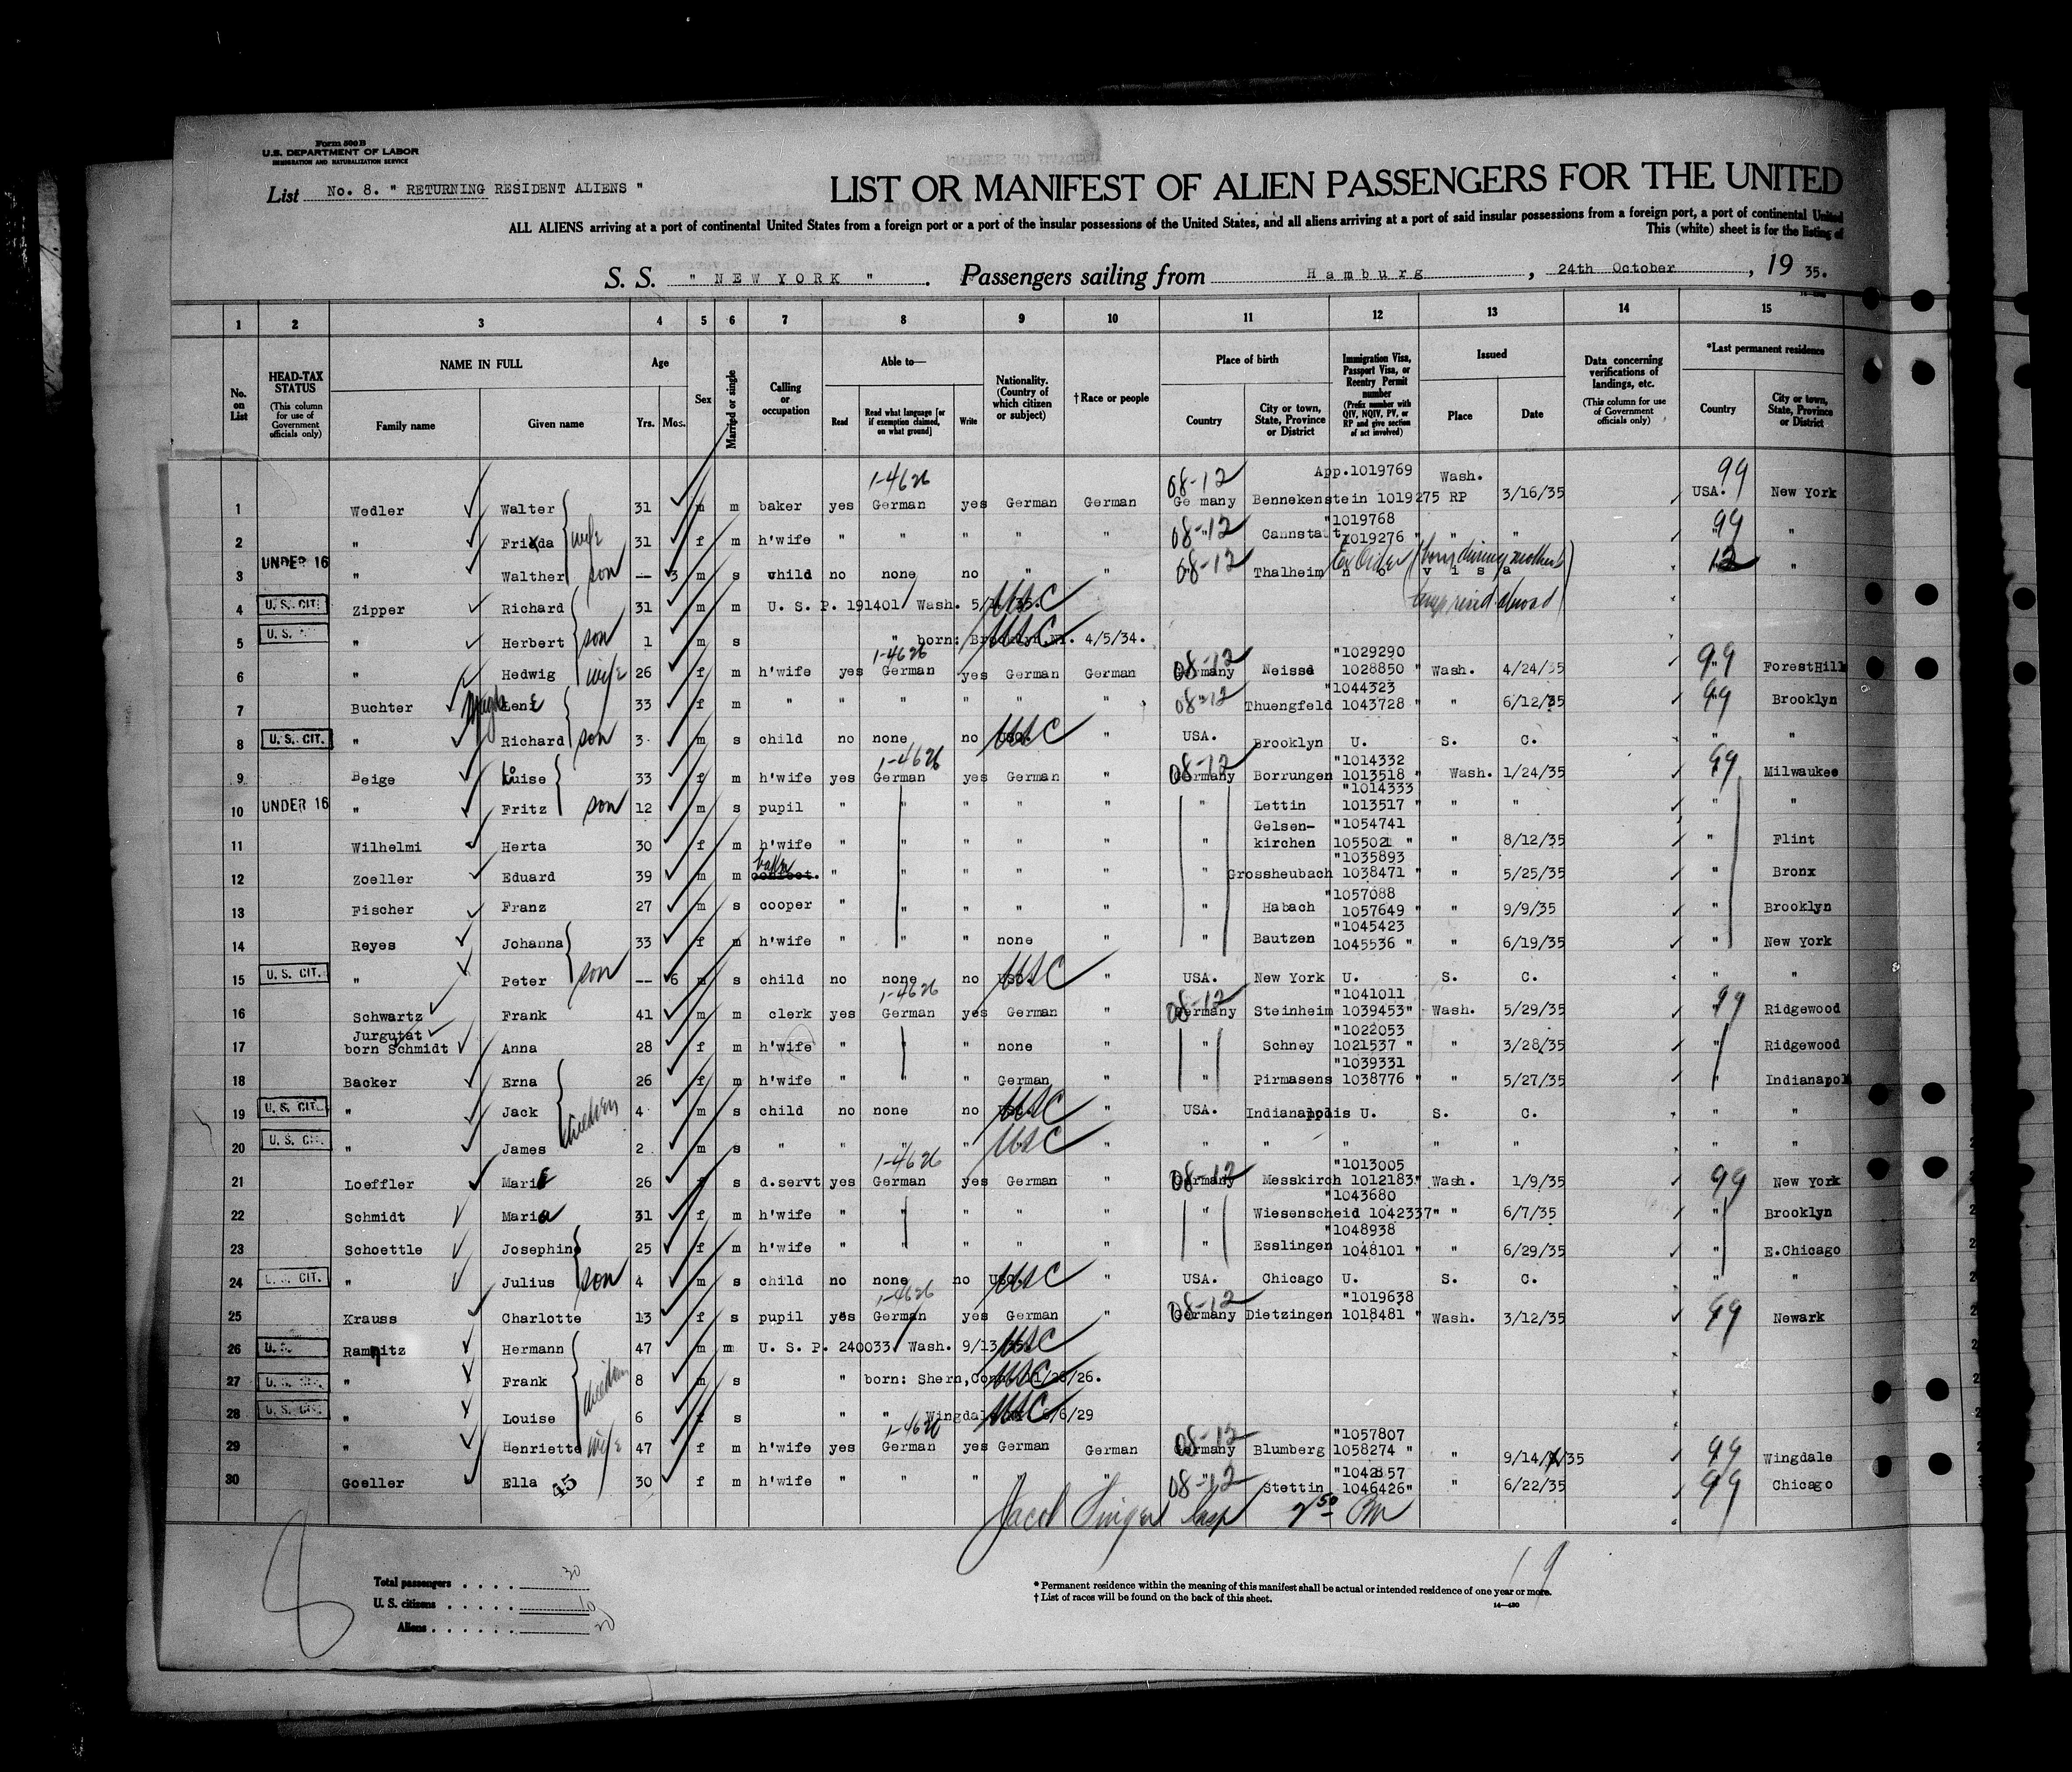 Form 500 B
U.S. DEPARTMENT OF LABOR
IMMIGRATION AND NATURALIZATION SERVICE
List No. 8. " RETURNING RESIDENT ALIENS "
LIST OR MANIFEST OF ALIEN PASSENGERS FOR THE UNITED
ALL ALIENS arriving at a port of continental United States from a foreign port or a port of the insular possessions of the United States, and all aliens arriving at a port of said insular possessions from a foreign port, a port of continental United
This (white) sheet is for the listing of
S. S. " NEW YORK " . Passengers sailing from Hamburg , 24th October , 19 35.
1 2 3 4 5 6 7 8 9 10 11 12 13 14 15
No. on List
HEAD-TAX STATUS (This column for use of Government officials only)
NAME IN FULL Family name Given name
Age Yrs. Mos.
Sex
Married or single
Calling or occupation
Able to— Read Read what language [or if exemption claimed, on what ground] Write
Nationality. (Country of which citizen or subject)
† Race or people
Place of birth Country City or town, State, Province or District
Immigration Visa, Passport Visa, or Reentry Permit number (Prefix number with QIV, NQIV, PV, or RP and give section of act involved)
Issued Place Date
Data concerning verifications of landings, etc. (This column for use of Government officials only)
*Last permanent residence Country City or town, State, Province or District
1-4626 08-12 App.1019769 Wash. 99
1 Wedler Walter 31 m m baker yes German yes German German Ge many Bennekenstein 1019275 RP 3/16/35 USA. New York
"1019768
2 " Frieda wife 31 f m h'wife " " " " " 08-12 Cannstatt 1019276 " " " 99 "
3 UNDER 16 " Walther son -- 3 m s child no none no " " 08-12 Thalheim n o v i s a Ex Order (born during mother's temp resid. abroad) 12 "
4 U. S. CIT. Zipper Richard 31 m m U. S. P. 191401 Wash. USC
5 U. S. " Herbert son 1 m s " born: Brooklyn NY. 4/5/34. USC
1-4626 "1029290
6 " Hedwig wife 26 f m h'wife yes German yes German German 08-12 Germany Neisse 1028850 " Wash. 4/24/35 99 ForestHill
"1044323
7 Buchter Lene 33 f m " " " " " " 08-12 Thuengfeld 1043728 " " 6/12/35 99 Brooklyn
8 U. S. CIT. " Richard son 3 m s child no none no USC " USA. Brooklyn U. S. C. " "
1-4626 "1014332
9 Beige Luise 33 f m h'wife yes German yes German " 08-12 Germany Borrungen 1013518 " Wash. 1/24/35 99 Milwaukee
"1014333
10 UNDER 16 " Fritz son 12 m s pupil " " " " " " Lettin 1013517 " " " " "
Gelsen- "1054741
11 Wilhelmi Herta 30 f m h'wife " " " " " " kirchen 1055021 " " 8/12/35 " Flint
"1035893
12 Zoeller Eduard 39 m m baker " " " " " " Grossheubach 1038471 " " 5/25/35 " Bronx
"1057088
13 Fischer Franz 27 m s cooper " " " " " " Habach 1057649 " " 9/9/35 " Brooklyn
"1045423
14 Reyes Johanna 33 f m h'wife " " " none " " Bautzen 1045536 " " 6/19/35 " New York
15 U. S. CIT. " Peter son -- 6 m s child no none no USC " USA. New York U. S. C. " "
1-4626 "1041011
16 Schwartz Frank 41 m m clerk yes German yes German " 08-12 Germany Steinheim 1039453" Wash. 5/29/35 99 Ridgewood
Jurgutat "1022053
17 born Schmidt Anna 28 f m h'wife " " " none " " Schney 1021537 " " 3/28/35 Ridgewood
"1039331
18 Backer Erna 26 f m h'wife " " " German " " Pirmasens 1038776 " " 5/27/35 " Indianapol
19 U. S. CIT. " Jack children 4 m s child no none no USC " USA. Indianapolis U. S. C. " "
20 U. S. CIT. " James 2 m s " " " " USC " " " " " " " "
1-4626 "1013005
21 Loeffler Marie 26 f s d.servt yes German yes German " 08-12 Germany Messkirch 1012183" Wash. 1/9/35 99 New York
"1043680
22 Schmidt Maria 31 f m h'wife " " " " " " Wiesenscheid 1042337" " 6/7/35 " Brooklyn
"1048938
23 Schoettle Josephine 25 f m h'wife " " " " " " Esslingen 1048101 " " 6/29/35 " E.Chicago
24 U. S. CIT. " Julius son 4 m s child no none no USC " USA. Chicago U. S. C. " "
1-4626 "1019638
25 Krauss Charlotte 13 f s pupil yes German yes German " 08-12 Germany Dietzingen 1018481 " Wash. 3/12/35 99 Newark
26 U. S. Hermann 47 m m U. S. P. 240033 Wash. 9/13/35. USC
27 U. S. CIT. " Frank children 8 m s " born: USC
28 U. S. CIT. " Louise 6 f s " " USC
1-4626 "1057807
29 " Henriette wife 47 f m h'wife yes German yes German German 08-12 Germany Blumberg 1058274 " " 9/14/35 99 Wingdale
30 Goeller Ella 45 30 f m h'wife " " " " " 08-12 Stettin 1046426" " 6/22/35 99 Chicago
Jacob Singer Insp 2 50 PM
8
Total passengers . . . . 30
U. S. citizens . . . . . 10
Aliens . . . . . . 20
19
* Permanent residence within the meaning of this manifest shall be actual or intended residence of one year or more.
† List of races will be found on the back of this sheet.
14—430